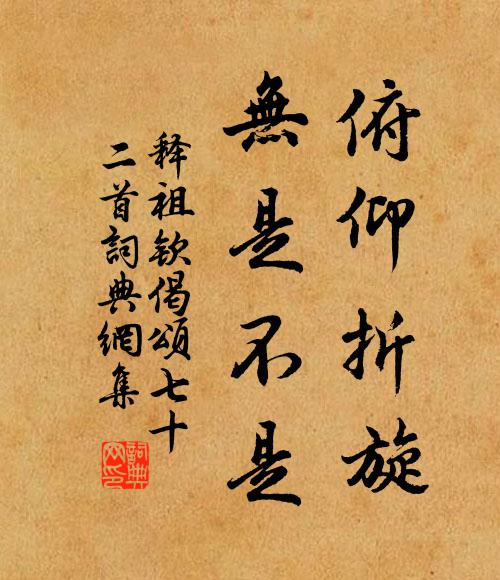 俯仰折旋
無是不是
释祖钦偈頌七十
二首詞典網集
詞典
网印